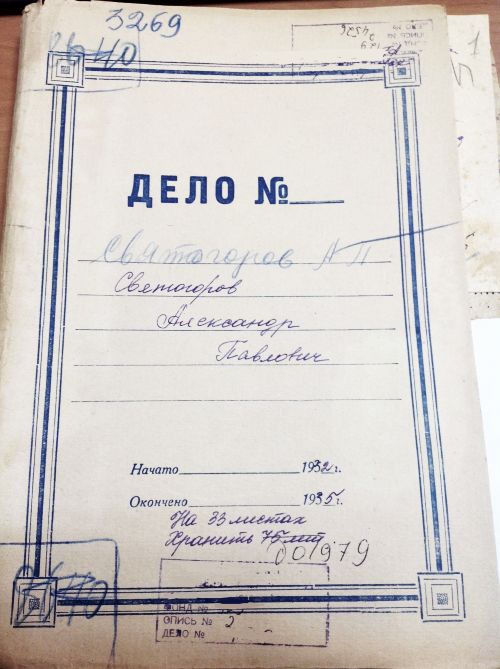 3269
ОПИСЬ №
4526
ДЕЛО №
Святогоров А П
Светогоров
Александр
Павлович
Начато 1932 г.
Окончено 1935 г.
На 33 листах
Хранить 75 лет
001979
ФОНД №
ОПИСЬ № 2
ДЕЛО №